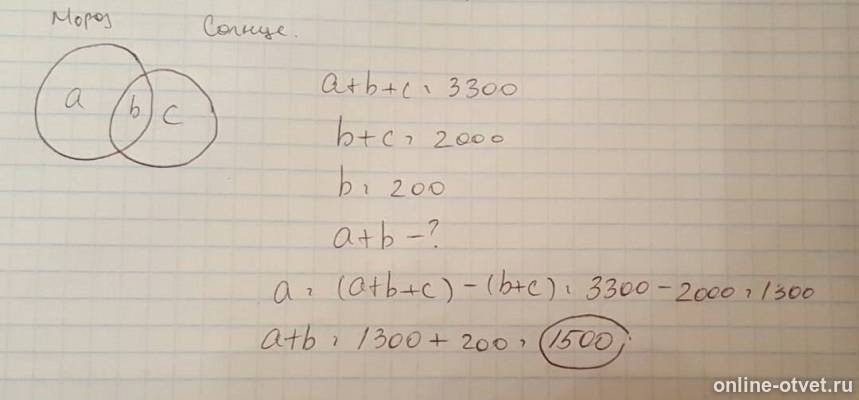 Мороз Солнце.
a b c
a+b+c = 3300
b+c = 2000
b = 200
a+b - ?
a = (a+b+c) - (b+c) = 3300 - 2000 = 1300
a+b = 1300 + 200 = 1500;
online-otvet.ru